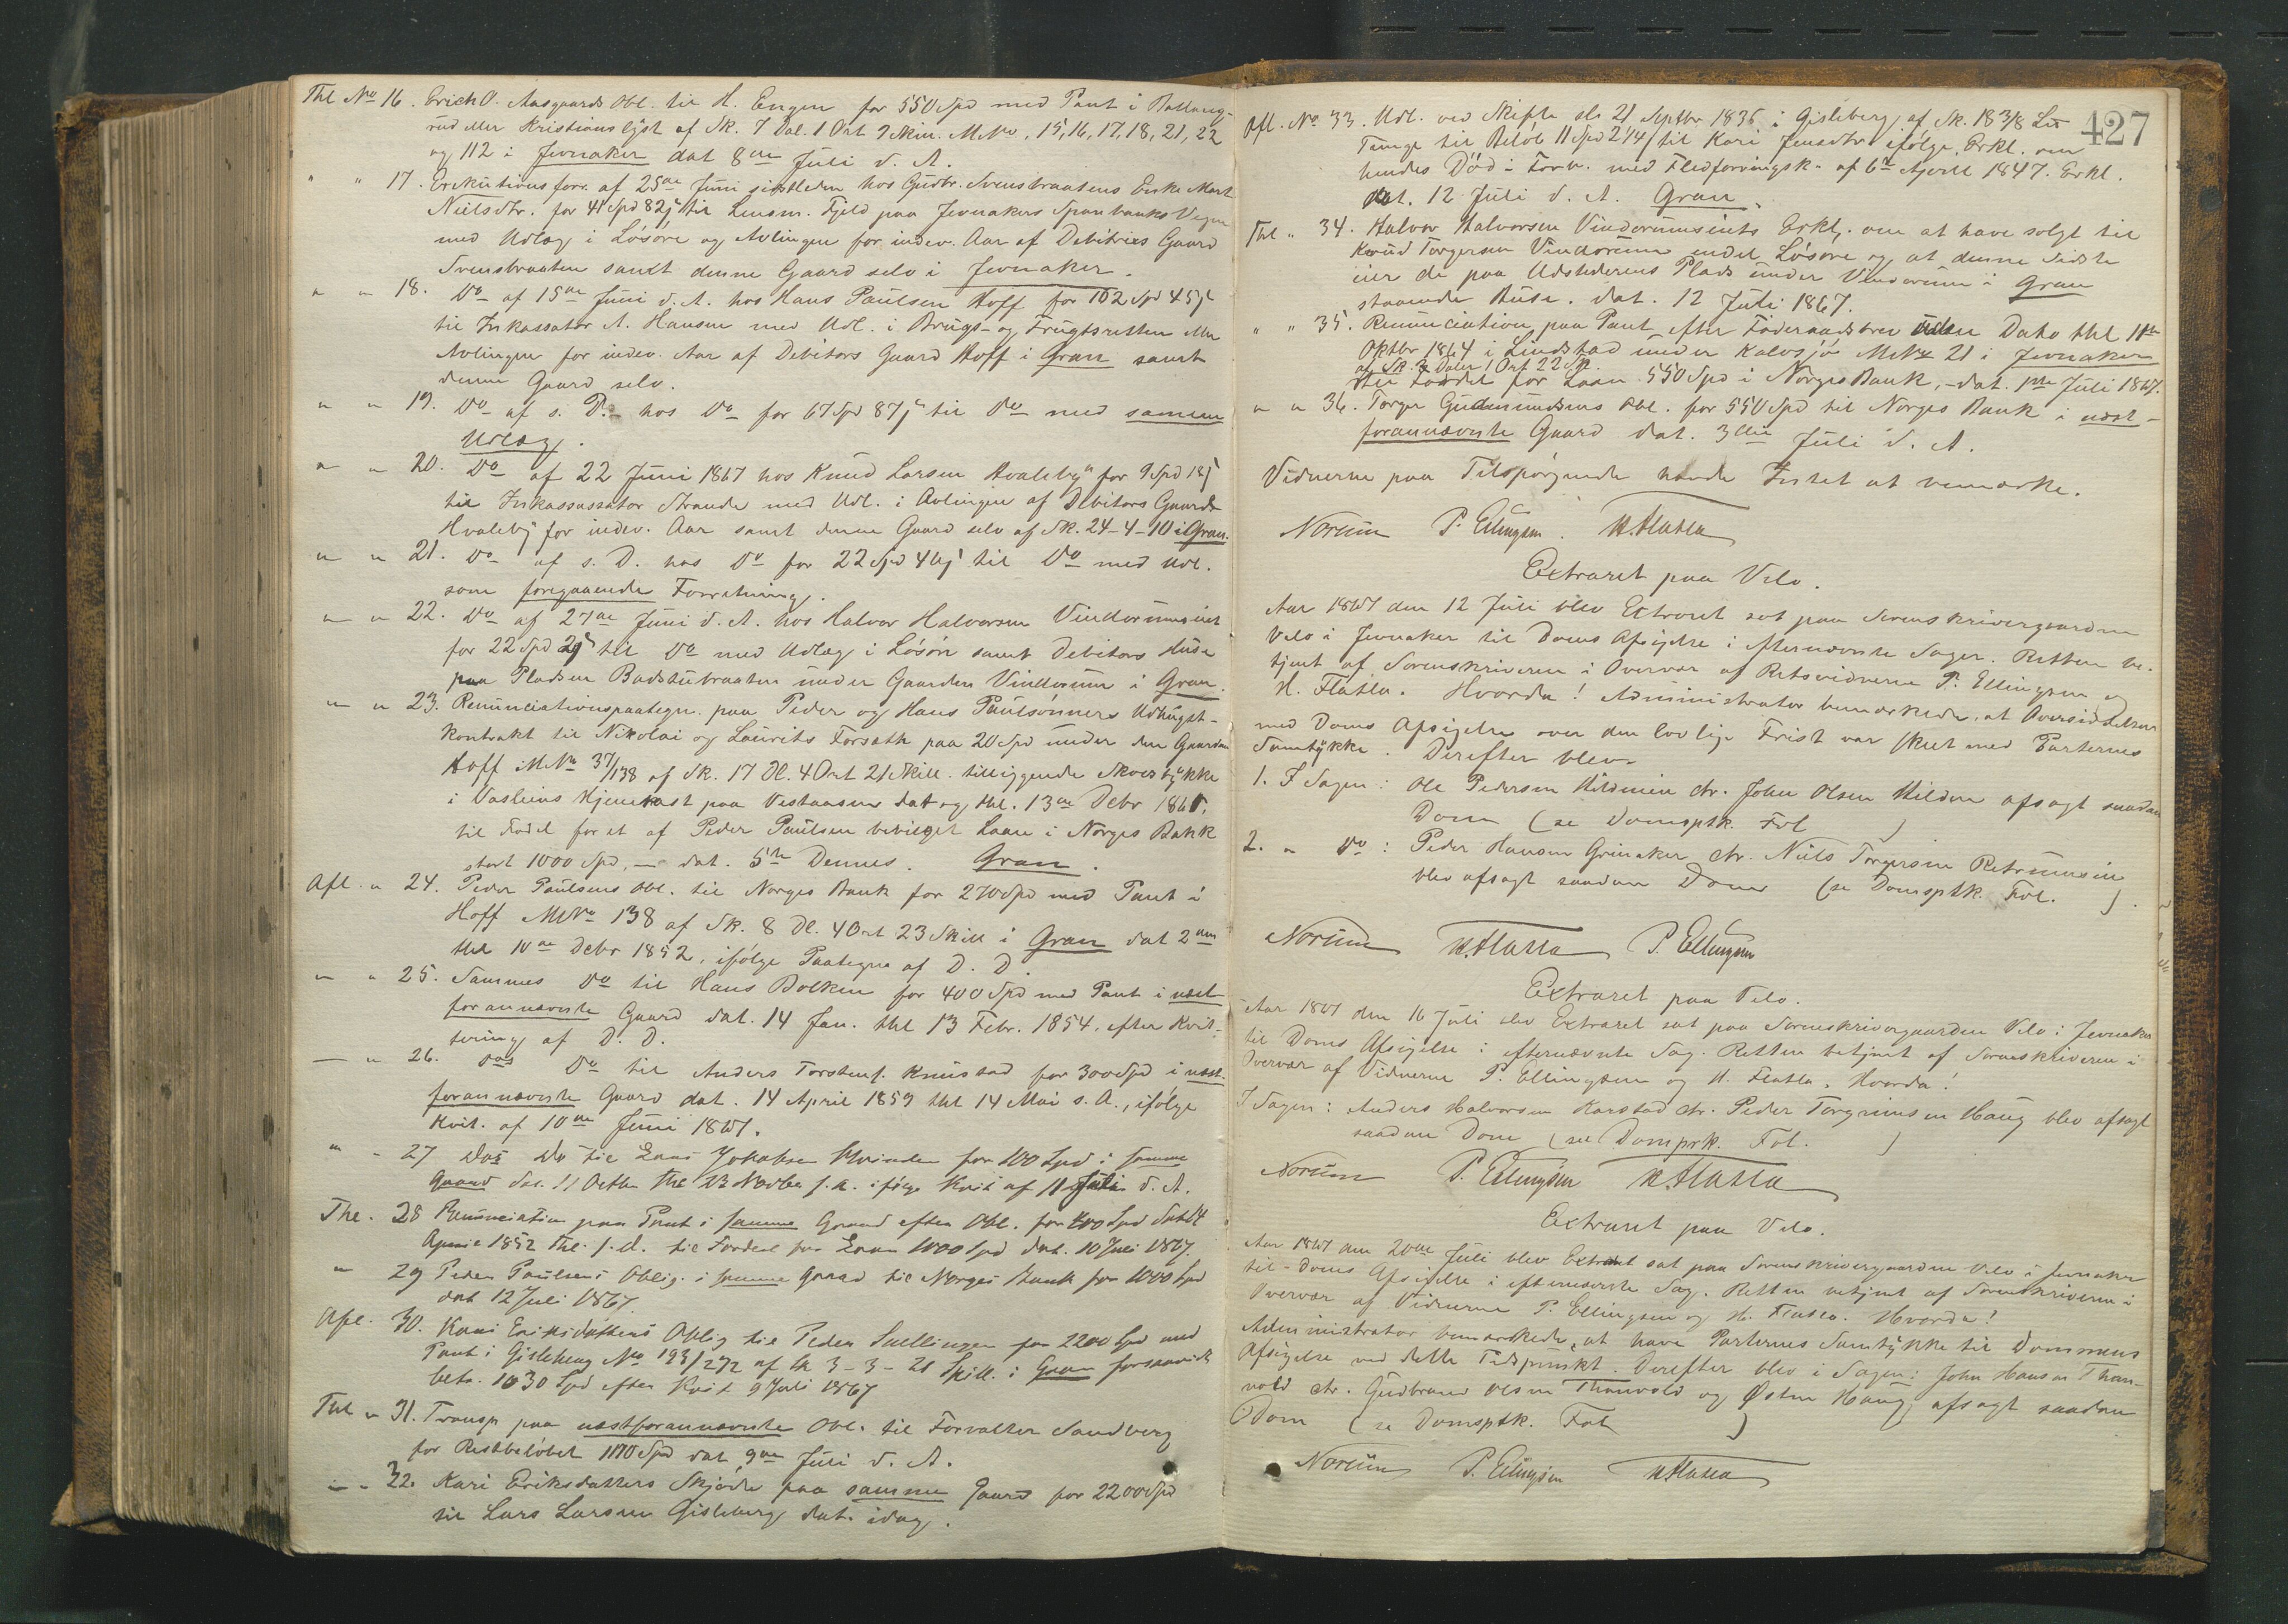 Thl No 16. Erich O. Aasgaards Obl. til H. Engen for 550 Spd med Pant i Ballang-
rud eller Kristianslyst af Sk. 7 Dal. 1 Ort 9 Skin. MNo. 15, 16, 17, 18, 21, 22
og 112 i Jevnaker dat 8de Juli d. A.
" " 17. Exekutionsforr. af 25de Juni sidstleden hos Gudbr. Svensbraatens Enke Marit
Nielsdtr. for 41 Spd 82 s til Lensm. Fjeld paa Jevnakers Sparebanks Vegne
med Udlæg i Løsøre og Avlingen for indev. Aar af Debitrixs Gaard
Svensbraaten samt denne Gaard selv i Jevnaker.
" " 18. Do af 15de Juni d. A. hos Hans Paulsen Hoff for 102 Spd 45 s
til Inkassator A. Hansen med Udl. i Brugs- og Frugtsretten eller
Avlingen for indev. Aar af Debitors Gaard Hoff i Gran samt
denne Gaard selv.
" " 19. Do af s. D. hos Do for 67 Spd 87 s til Do med samme
Udlæg.
" " 20. Do af 22 Juni 1867 hos Knud Larsen Hvaleby for 9 Spd 18 s
til Inkassassator Strande med Udl. i Avlingen af Debitors Gaard
Hvaleby for indev. Aar samt denne Gaard selv af Sk. 24-4-10 i Gran.
" " 21. Do af s. D. hos Do for 22 Spd 46 s til Do med Udl.
som foregaaende Forretning.
" " 22. Do af 27de Juni d. A. hos Halvor Halvorsen Vindorumseiet
for 22 Spd 2 s til Do med Udlæg i Løsøre samt Debitors Huse
paa Pladsen Badstubraaten under Gaarden Vindorum i Gran.
" " 23. Renunciationspaategn. paa Peder og Hans Paulsønners Udhugst-
kontrakt til Nikolai og Laurits Forsæth paa 20 Spd under den Gaarden
Hoff MNo 37/138 af Sk. 17 Dl. 4 Ort 21 Skill. tilliggende Skovstykke
i Vasliens Hjemrast paa Vestaasen dat og thl. 13de Debr 1865,
til Fodel for et af Peder Paulsen bevilget Laan i Norges Bank
stort 1000 Spd, — dat. 5te Dennes. Gran.
Afl. " 24. Peder Paulsens Obl. til Norges Bank for 270 Spd med Pant i
Hoff MNo 138 af Sk. 8 Dl. 4 Ort 23 Skill i Gran dat 2den
thl 10de Debr 1852, ifølge Paategn af D. D.
" " 25. Sammes Do til Hans Bolken for 400 Spd med Pant i næst-
forannævnte Gaard dat. 14 Jan. thl 13 Febr. 1854, efter Kvit-
tering af D. D.
— " 26. Dos Do til Anders Torstens. Knustad for 300 Spd i næst-
forannævnte Gaard dat. 14 April 1859 thl 14 Mai s. A., ifølge
Kvit. af 10de Juni 1867.
" " 27 Dos Do til Lars Jokabsen Hvinden for 100 Spd i samme
Gaard dat. 11 Octbr thl 23 Novbr s. A. ifølge Kvit af 11 Juli d. A.
Thl. 28 Renunciation paa Pant i samme Gaard efter Obl. for 400 Spd dat 24
April 1852 thl. s. d. til Fordeel for Laan 1000 Spd dat. 10 Juli 1867.
" 29 Peder Paulsens Oblig. i samme Gaard til Norges Bank for 1000 Spd
dat 12 Juli 1867.
Afl. 30. Kari Eriksdatters Oblig til Peder Snellingen for 2200 Spd med
Pant i Gisleberg No 193/272 af Sk 3-3-21 Skill. i Gran forsaavidt
betr. 1030 Spd efter Kvit 9 Juli 1867
Thl " 31. Transp paa næstforannævnte Obl. til Forvalter Sandberg
for Restbeløbet 1170 Spd dat 9de Juli d. A.
" " 32. Kari Eriksdatters Skjøde paa samme Gaard for 2200 Spd
til Lars Larsen Gisleberg, dat. idag.
427
Afl. No 33. Udl. ved Skifte sl. 21 Septbr 1835 i Gisleberg, af Sk. 18 3/8 Lis
Tunge til Beløb 11 Spd 2 1/4 s til Kari Jensdtr ifølge Erkl. om
hendes Død i Forb. med Fledføringsk. af 6te April 1847. Erkl.
dat. 12 Juli d. A. Gran.
Thl " 34. Halvor Halvorsen Vindorumseiets Erkl. om at have solgt til
Knud Torgersen Vindorum endel Løsøre og at denne Sidste
eier de paa Udstederens Plads under Vindorum i Gran
staaende Huse. dat. 12 Juli 1867.
" " 35. Renunciation paa Pant efter Føderaadsbrev uden Dato thl 11te
Oktbr 1864 i Lindstad under Kalvsjø MNo 21 i Jevnaker
af Sk. 2 Daler 1 Ort 22 Sk.
til Fordel for Laan 550 Spd i Norges Bank, — dat. 1ste Juli 1867.
" " 36. Torger Gudmundsens Obl. for 550 Spd til Norges Bank i næst-
forannævnte Gaard dat. 3die Juli d. A.
Vidnerne paa Tilspørgende havde Intet at bemærke.
Norum P. Ellingsen. H. Flatla
Extraret paa Velo.
Aar 1867 den 12 Juli blev Extraret sat paa Sorenskrivergaarden
Velo i Jevnaker til Doms Afsigelse i efternævnte Sager. Retten be-
tjent af Sorenskriveren i Overvær af Retsvidnerne P. Ellingsen og
H. Flatla. Hvorda! Administrator bemærkede, at Oversiddelsen
med Doms Afsigelse over den lovlige Frist var skeet med Parternes
Samtykke. Derefter blev
1. I Sagen: Ole Pedersen Hilden ctr. John Olsen Hilden afsagt saadan
Dom (se Domsptk. Fol )
2. " Do: Peder Hansen Grinaker ctr. Niels Torgersen
blev afsagt saadan Dom (se Domsptk. Fol. ).
Norum H. Flatla P. Ellingsen
Extraret paa Velo.
Aar 1867 den 16 Juli blev Extraret sat paa Sorenskrivergaarden Velo i Jevnaker
til Doms Afsigelse i efternævnte Sag. Retten betjent af Sorenskriveren i
Overvær af Vidnerne P. Ellingsen og H. Flatla. Hvorda!
I Sagen: Anders Halvorsen Karstad ctr. Peder Torgrimsen Haug blev afsagt
saadan Dom (se Domprk. Fol. )
Norum P. Ellingsen H. Flatla
Extraret paa Velo.
Aar 1867 den 20de Juli blev Extraret sat paa Sorenskrivergaarden Velo i Jevnaker
til Doms Afsigelse i efternævnte Sag. Retten betjent af Sorenskriveren i
Overvær af Vidnerne P. Ellingsen og H. Flatla. Hvorda!
Administrator bemærkede, at have Parternes Samtykke til Dommens
Afsigelse ved dette Tidspunkt. Derefter blev i Sagen: John Hansen Than-
vold ctr. Gudbrand Olsen Thanvold og Østen Haug, afsagt saadan
Dom (se Domsptk. Fol )
Norum P. Ellingsen H. Flatla